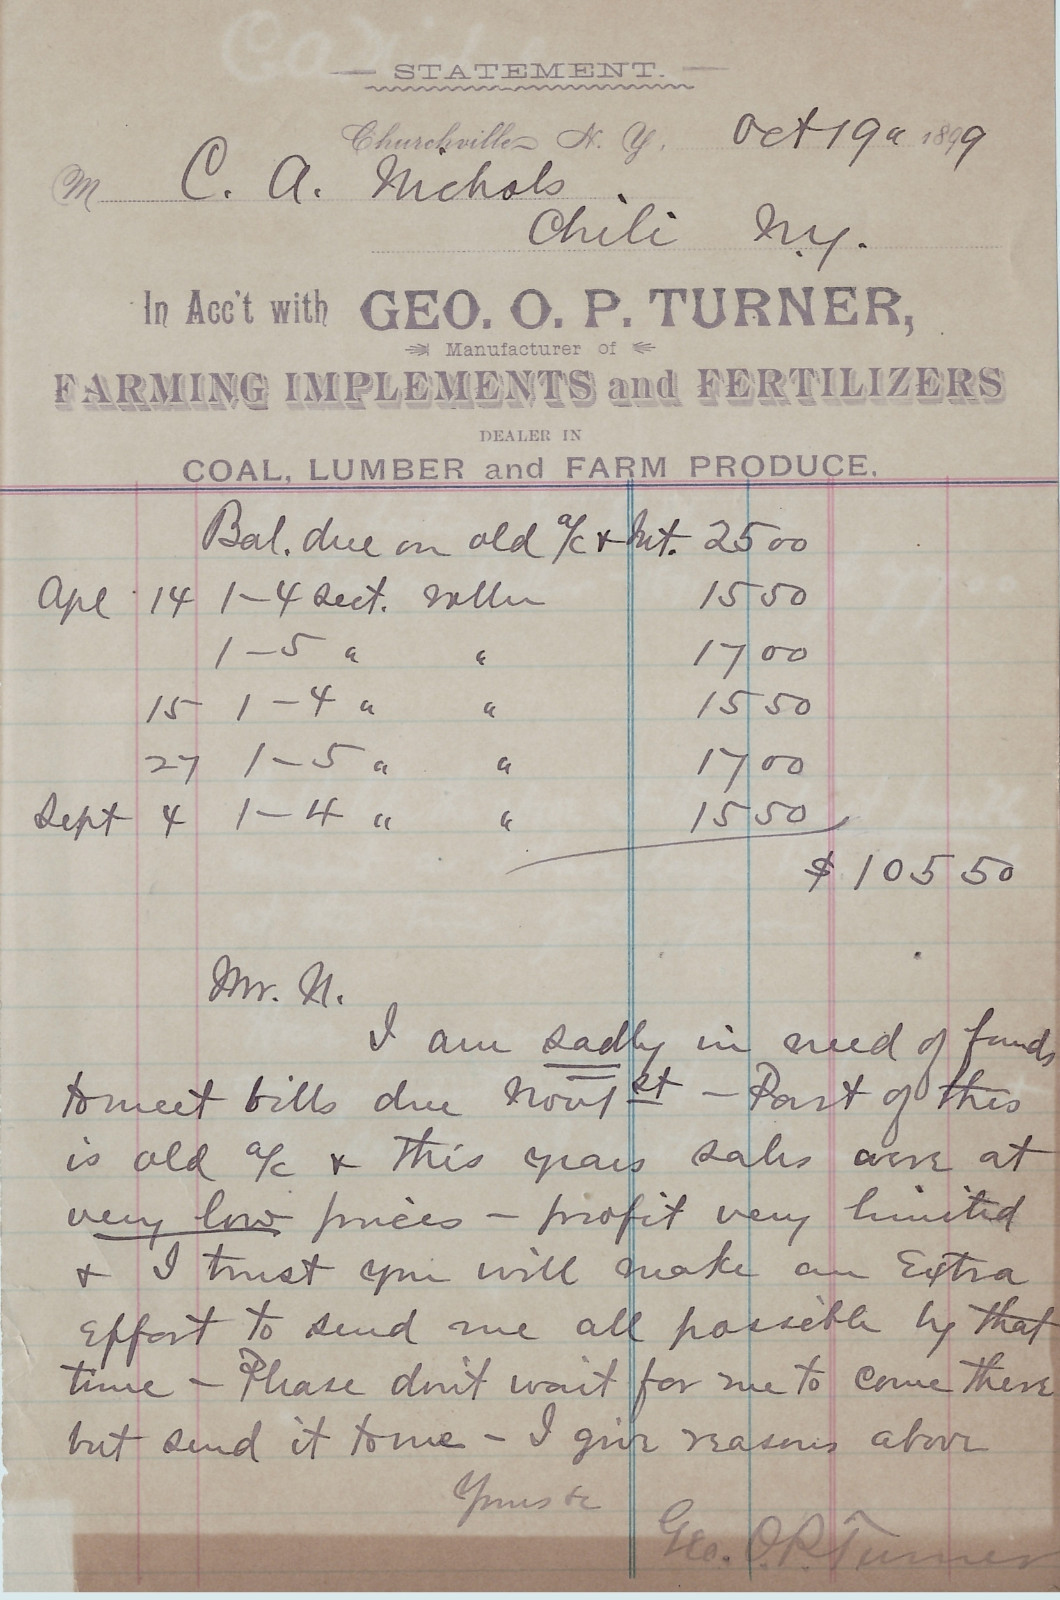 STATEMENT.
Churchville N. Y. Oct 19 1899
M C. A. Nichols
Chili N.Y.
In Acc't with GEO. O. P. TURNER,
Manufacturer of
FARMING IMPLEMENTS and FERTILIZERS
DEALER IN
COAL, LUMBER and FARM PRODUCE.
Bal. due on old a/c & Int. 25 00
Apl 14 1-4 sect. roller 15 50
1-5 " " 17 00
15 1-4 " " 15 50
27 1-5 " " 17 00
Sept 4 1-4 " " 15 50
$105 50
Mr. N.
I am sadly in need of funds
to meet bills due Nov 1st – Part of this
is old a/c & this years sales were at
very low prices – profit very limited
& I trust you will make an Extra
effort to send me all possible by that
time – Please don't wait for me to come there
but send it to me – I give reasons above
Yours &c
Geo. O. P. Turner